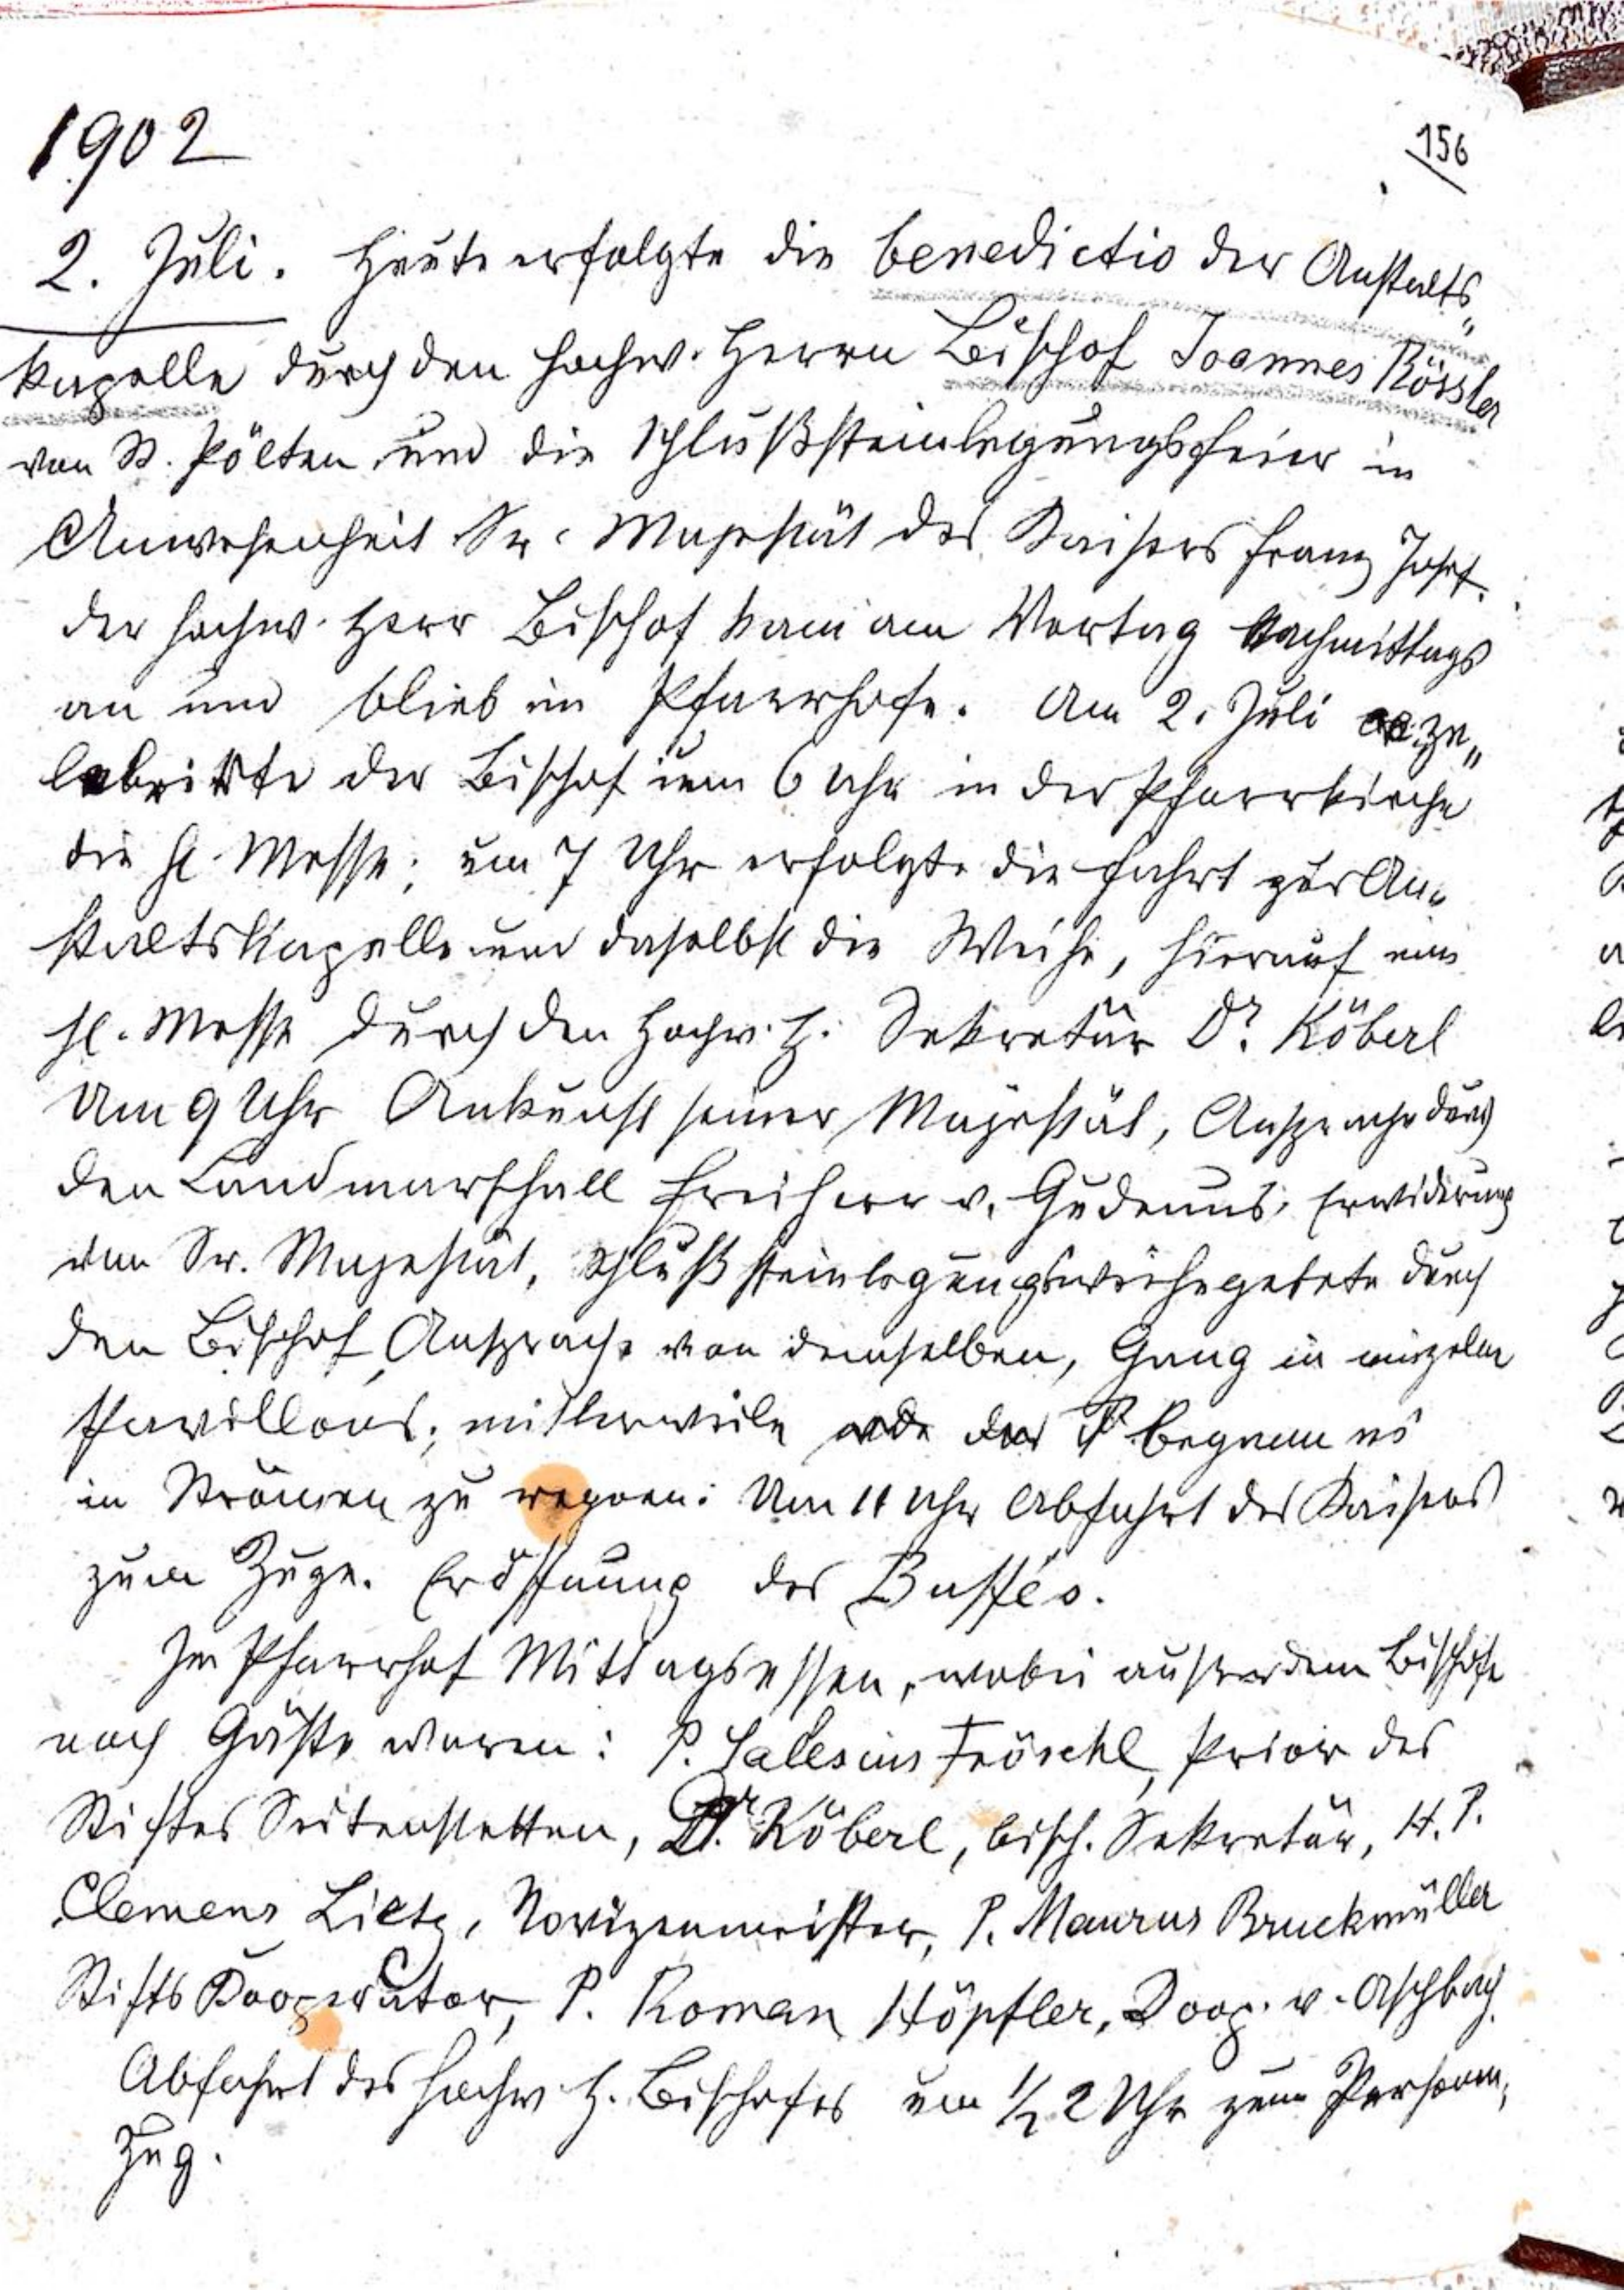 1902
156
2. Juli. Heute erfolgte die benedictio der Anstalts„
kapelle durch den hochw. Herrn Bischof Joannes Rössler
von St. Pölten und die Schlußsteinlegungsfeier in
Anwesenheit Sr. Majestät des Kaisers Franz Josef.
Der hochw. Herr Bischof kam am Vortag Nachmittags
an und blieb im Pfarrhofe. Am 2. Juli ze„
lebrirte der Bischof um 6 Uhr in der Pfarrkirche
die hl. Messe; um 7 Uhr erfolgte die Fahrt zur An„
staltskapelle und daselbst die Weihe, hierauf eine
hl. Messe durch den Hochw. H. Sekretär Dr. Köberl
Um 9 Uhr Ankunft seiner Majestät, Ansprache durch
den Landmarschall Freiherr v. Gudenus; Erwiderung
von Sr. Majestät, Schlußsteinlegungsweihegebete durch
den Bischof, Ansprache von demselben, Gang in einzelne
Pavillons; mittlerweile begann es
in Strömen zu regnen. Um 11 Uhr Abfahrt des Kaisers
zum Zuge. Eröffnung des Buffés.
Im Pfarrhof Mittagsessen, wobei außer dem Bischofe
noch Gäste waren: P. Salesius Fröschl, Prior des
Stiftes Seitenstetten, Dr. Köberl, bisch. Sekretär, H. P.
Clemens Lietz, Novizenmeister, P. Maurus Bruckmüller
Stifts Kooperator, P. Roman Höpfler, Koop. v. Aschbach.
Abfahrt des hochw. H. Bischofes um 1/2 2 Uhr zum Personen„
zug.